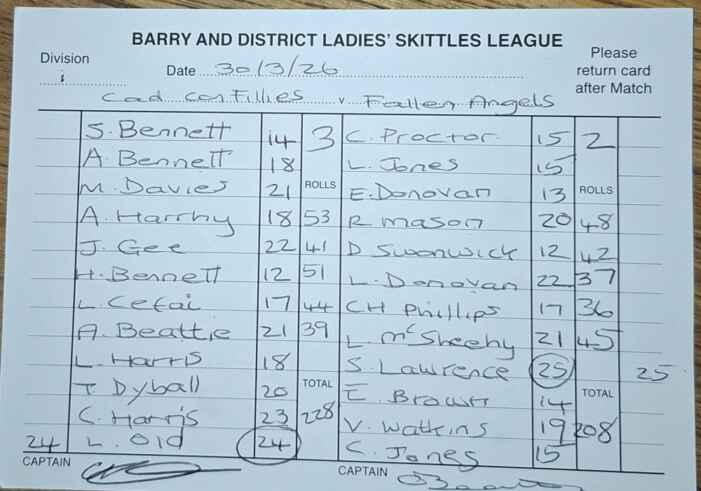 BARRY AND DISTRICT LADIES' SKITTLES LEAGUE
Division
1
Date 30/3/26
Please
return card
after Match
Cad con Fillies v Fallen Angels
S. Bennett 14 3 C. Proctor 15 2
A. Bennett 18 L. Jones 15
M. Davies 21 ROLLS E. Donovan 13 ROLLS
A. Harrhy 18 53 R Mason 20 48
J. Gee 22 41 D Swonwick 12 42
H. Bennett 12 51 L. Donovan 22 37
L. Cefai 17 44 CH Phillips 17 36
A. Beattie 21 39 L. McSheehy 21 45
L. Harris 18 S. Lawrence 25 25
T Dyball 20 TOTAL E. Brown 14 TOTAL
C. Harris 23 228 V. Watkins 19 208
24 L. Old 24 C. Jones 15
CAPTAIN CAPTAIN